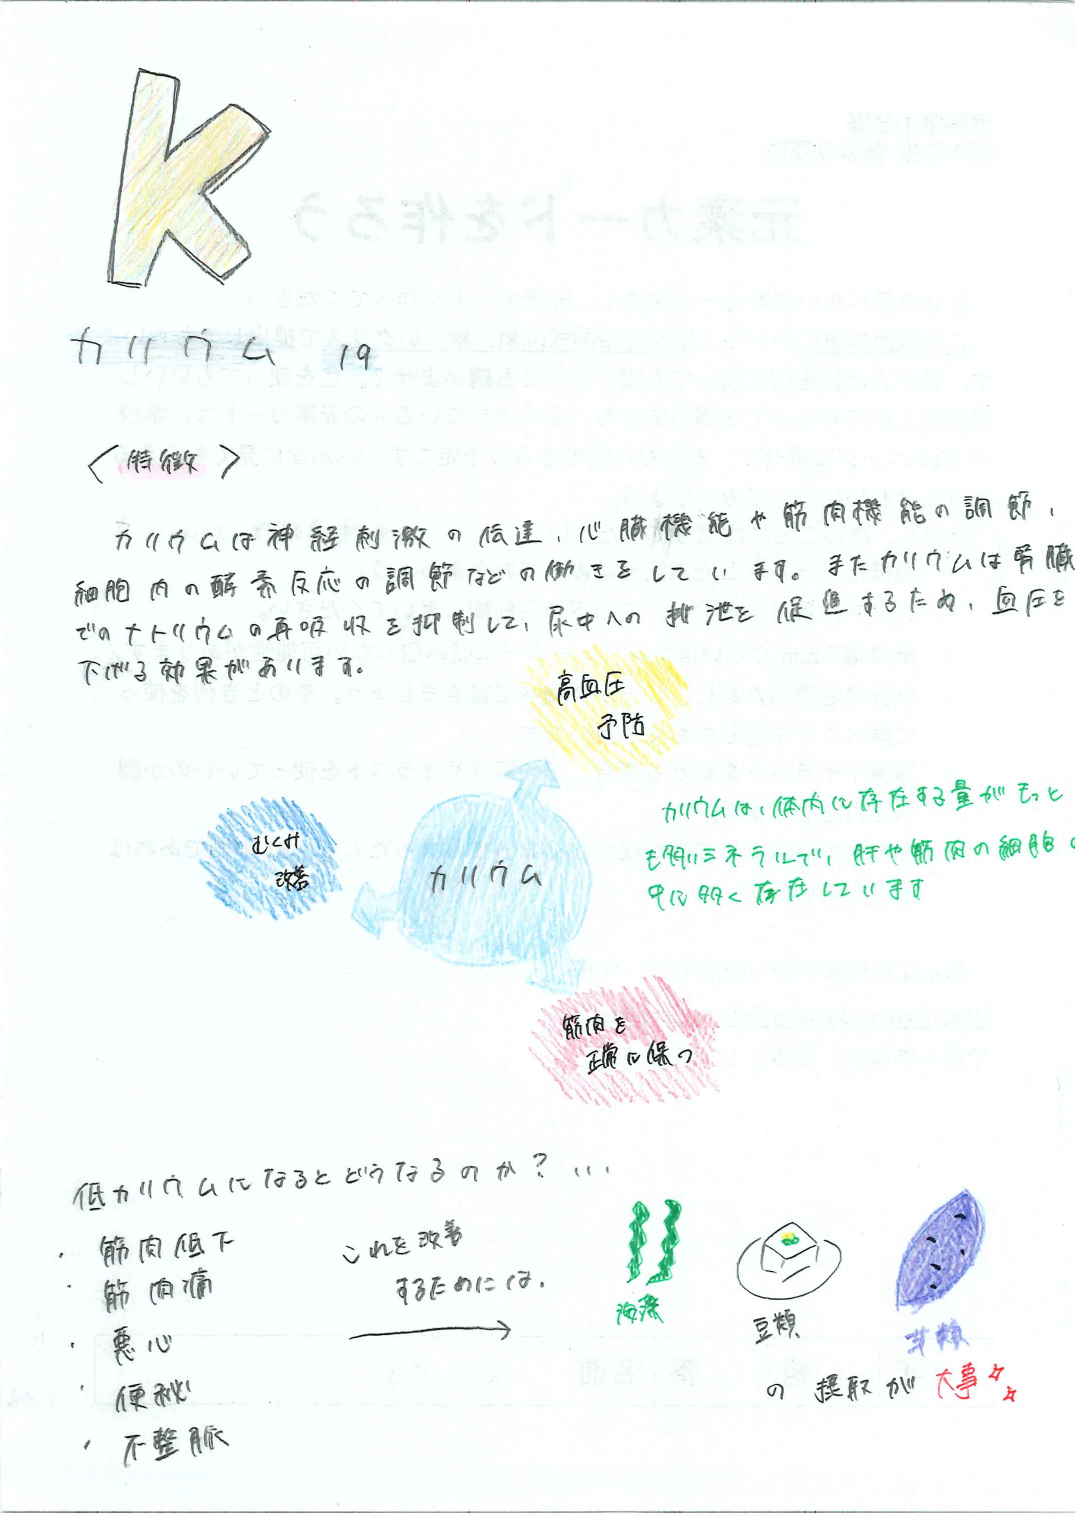 K
カリウム 19
〈特徴〉
カリウムは神経刺激の伝達、心臓機能や筋肉機能の調節、
細胞内の酵素反応の調節などの働きをしています。またカリウムは腎臓
でのナトリウムの再吸収を抑制して、尿中への排泄を促進するため、血圧を
下げる効果があります。
高血圧
予防
むくみ
改善
カリウム
カリウムは、体内に存在する量がもっと
も多いミネラルで、肝や筋肉の細胞の
中に多く存在しています
筋肉を
正常に保つ
低カリウムになるとどうなるのか?...
・筋肉低下
・筋肉痛
・悪心
・便秘
・不整脈
これを改善
するためには、
海藻
豆類
芋類
の摂取が大事